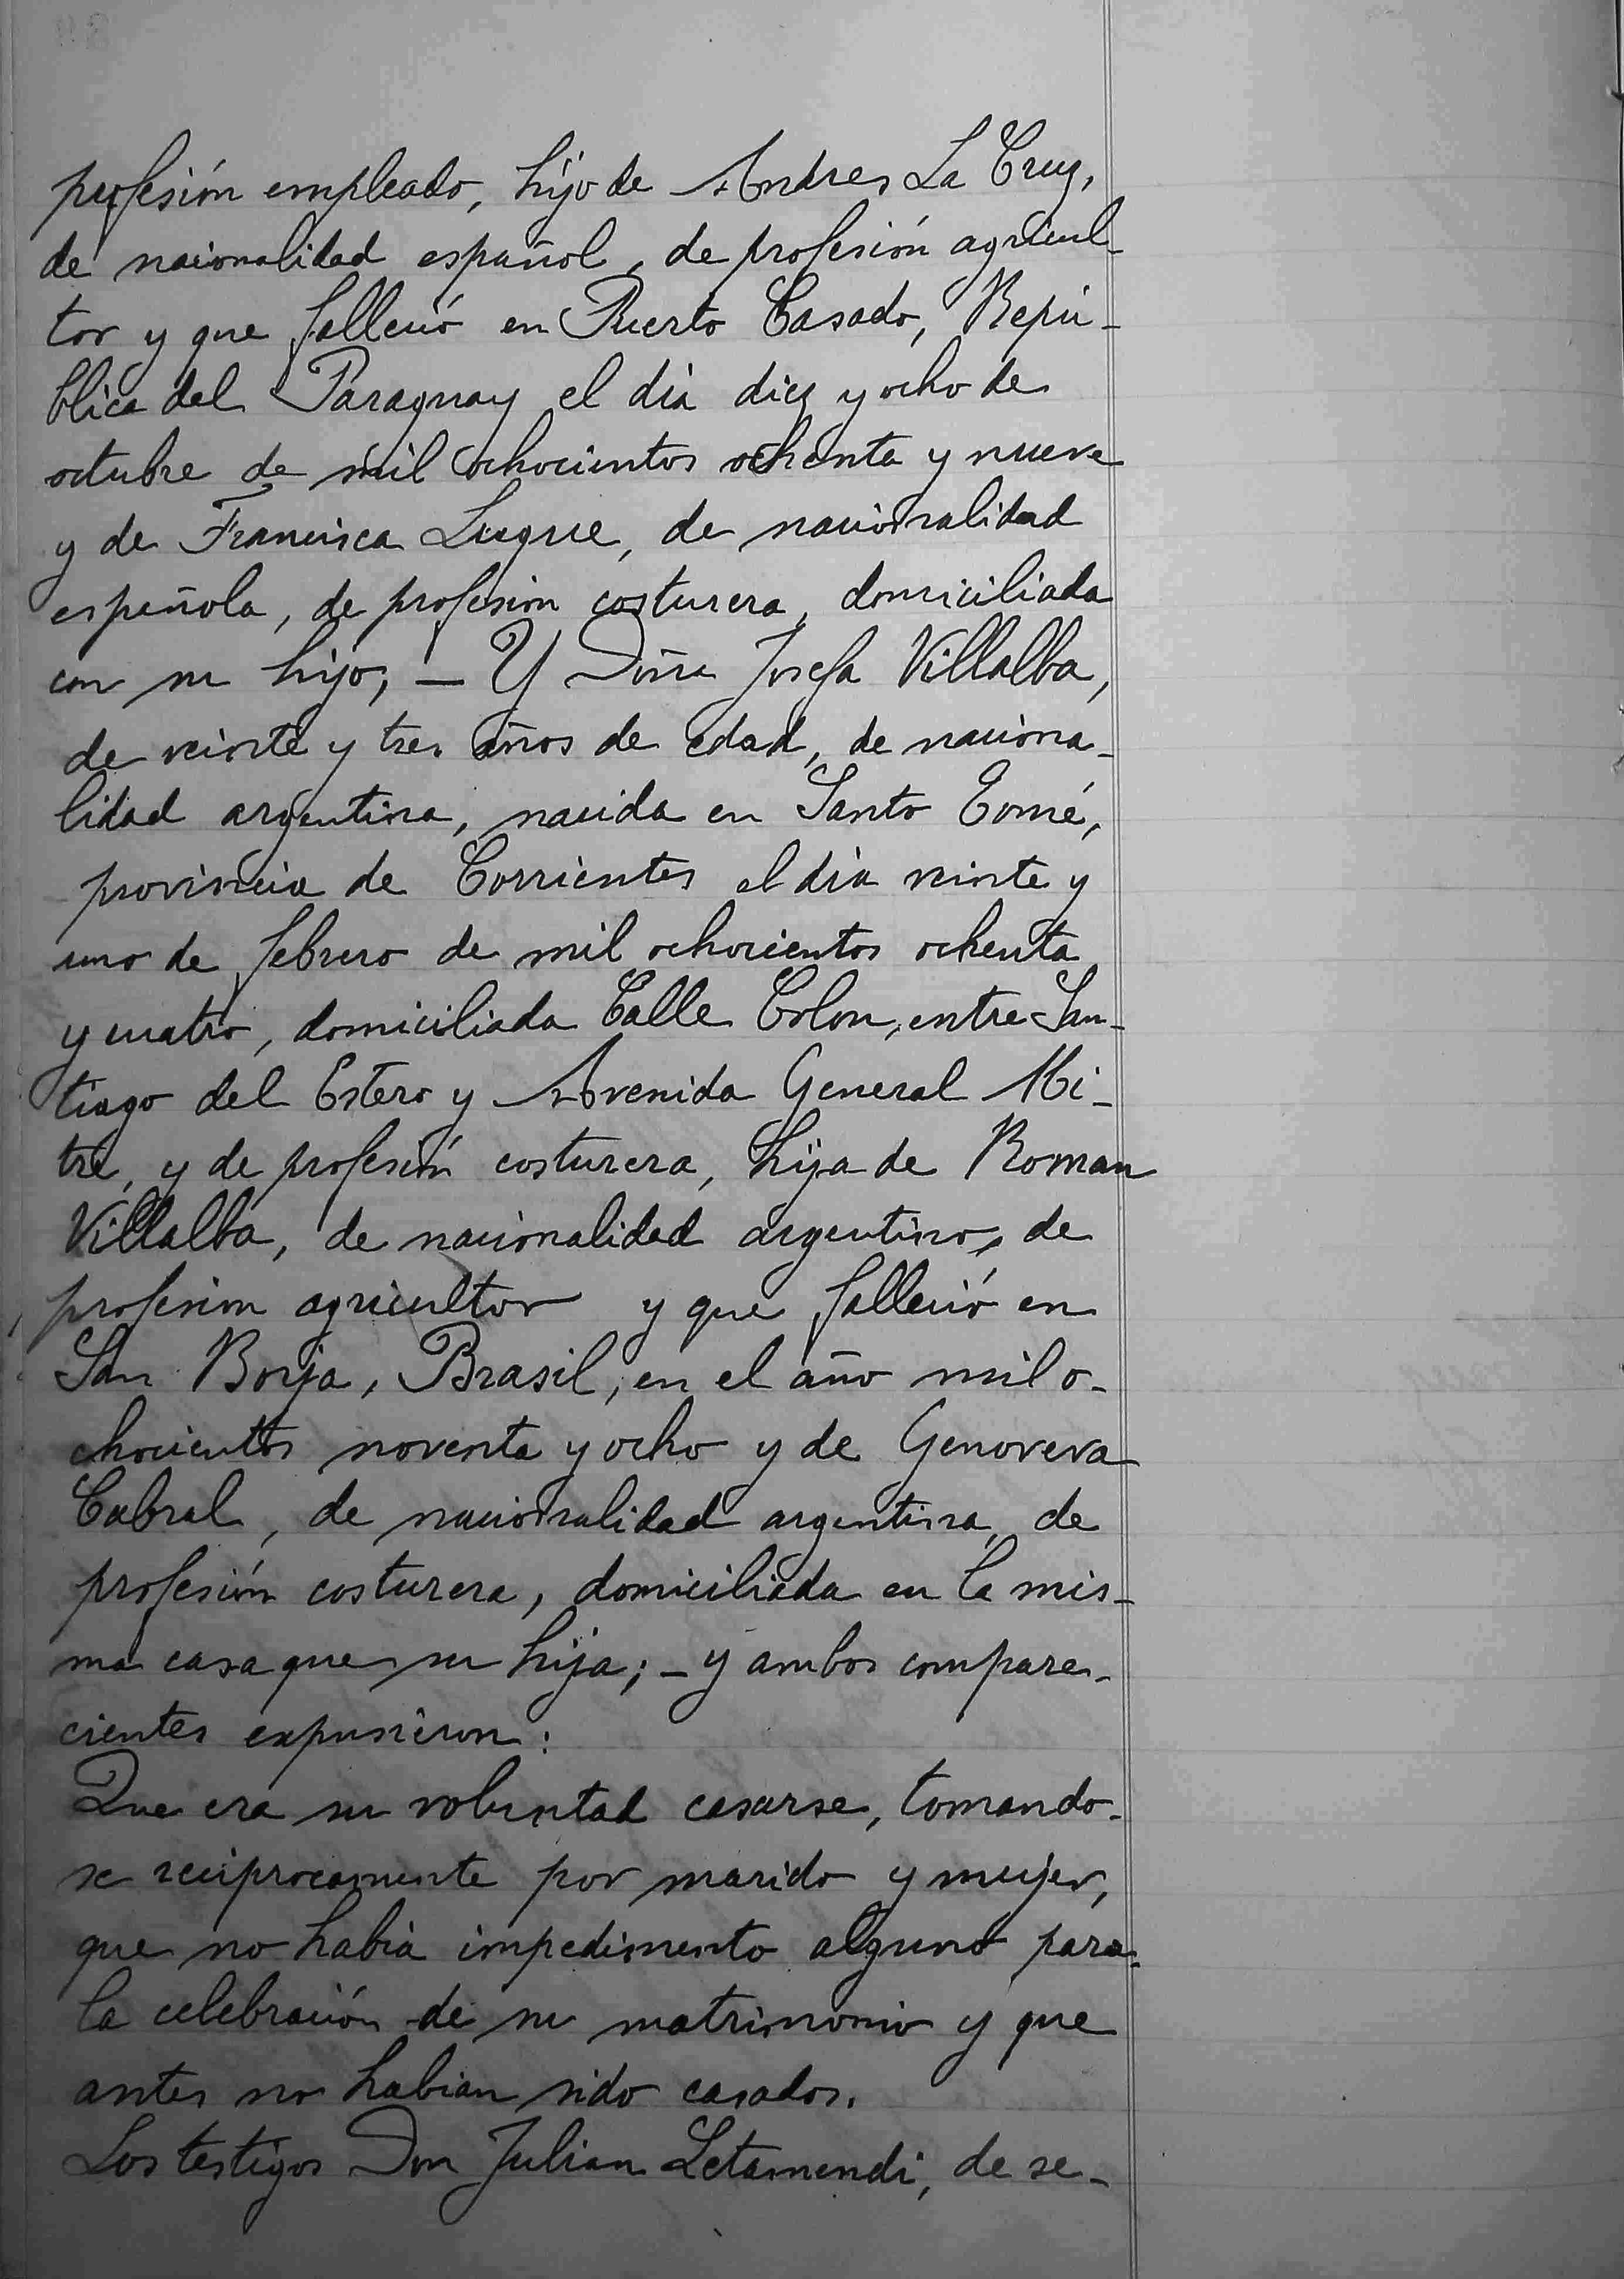 profesión empleado, hijo de Andres La Cruz,
de nacionalidad español, de profesión agricul-
tor y que falleció en Puerto Casado, Repú-
blica del Paraguay el dia diez y ocho de
octubre de mil ochocientos ochenta y nueve
y de Francisca Luque, de nacionalidad
española, de profesion costurera, domiciliada
con su hijo; — Y Doña Josefa Villalba,
de veinte y tres años de edad, de naciona-
lidad argentina, nacida en Santo Tomé,
provincia de Corrientes el dia veinte y
uno de febrero de mil ochocientos ochenta
y cuatro, domiciliada Calle Colon, entre San-
tiago del Estero y Avenida General Mi-
tre, y de profesión costurera, hija de Roman
Villalba, de nacionalidad argentino, de
profesion agricultor y que falleció en
San Borja, Brasil, en el año mil o-
chocientos noventa y ocho y de Genoveva
Cabral, de nacionalidad argentina, de
profesión costurera, domiciliada en la mis-
ma casa que su hija; - y ambos compare-
cientes expusieron:
Que era su voluntad casarse, tomando-
se reciprocamente por marido y mujer,
que no habia impedimento alguno para
la celebración de su matrimonio y que
antes no habian sido casados.
Los testigos Don Julian Letamendi, de se-